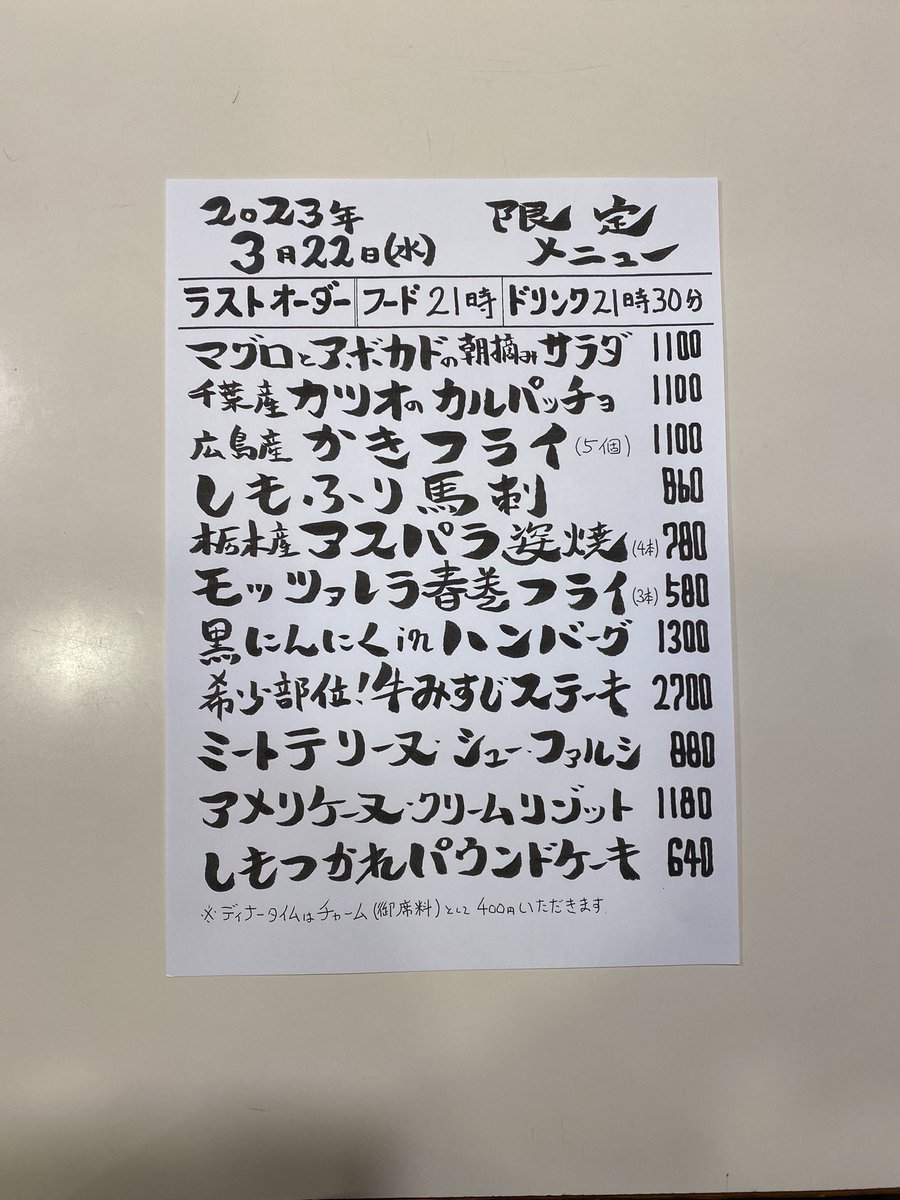 2023年 限定
3月22日(水) メニュー
ラストオーダー フード21時 ドリンク21時30分
マグロとアボカドの朝摘みサラダ 1100
千葉産カツオのカルパッチョ 1100
広島産かきフライ(5個) 1100
しもふり馬刺 860
栃木産アスパラ姿焼(4本) 780
モッツァレラ春巻フライ(3本) 580
黒にんにくinハンバーグ 1300
希少部位!牛みすじステーキ 2700
ミートテリーヌ・シュー・ファルシ 880
アメリケーヌ・クリームリゾット 1180
しもつかれパウンドケーキ 640
※ディナータイムはチャーム(御席料)として400円いただきます